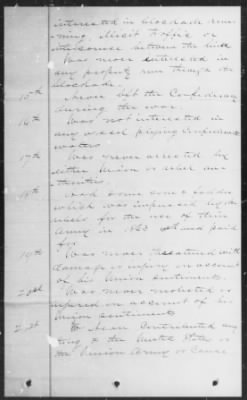 interested in blockade run
ning, illicit traffic or
intercourse between the lines
Was never interested in
any property run through the
blockade.
15th Never left the Confederacy
during the war.
16th Was not interested in
any vessel plying Confederate
waters
17th Was never arrested by
either Union or rebel au
thorities.
18th Had some corn & fodder
which was impressed by
for the use of their
Army in 186 and paid
for.
19th Was never threatened with
damage or injury on account
of his Union sentiments.
Was never molested or
injured on account of his
Union sentiments
21st contributed any
thing to the United States or
the Union Army or cause